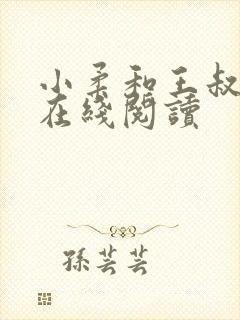 小柔和王叔
在綫閱讀
孫芸芸